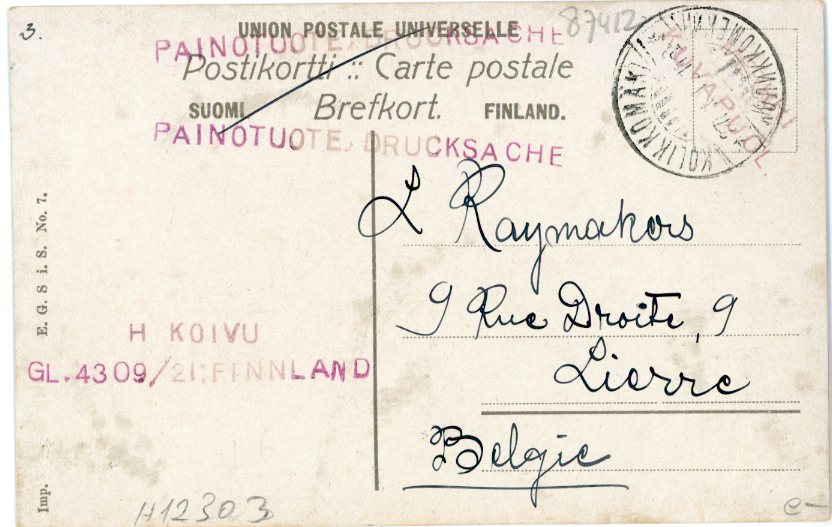 3.
87412
UNION POSTALE UNIVERSELLE
PAINOTUOTE, DRUCKSACHE
Postikortti :: Carte postale
SUOMI Brefkort. FINLAND.
PAINOTUOTE, DRUCKSACHE
KOLIKKOMÄKI
KUVAPUOL
L Raymakers
9 Rue Droite, 9
Lierre
Belgie
H KOIVU
GL.4309/21:FINNLAND
Imp. E. G. S i. S. No. 7.
H12303
e-